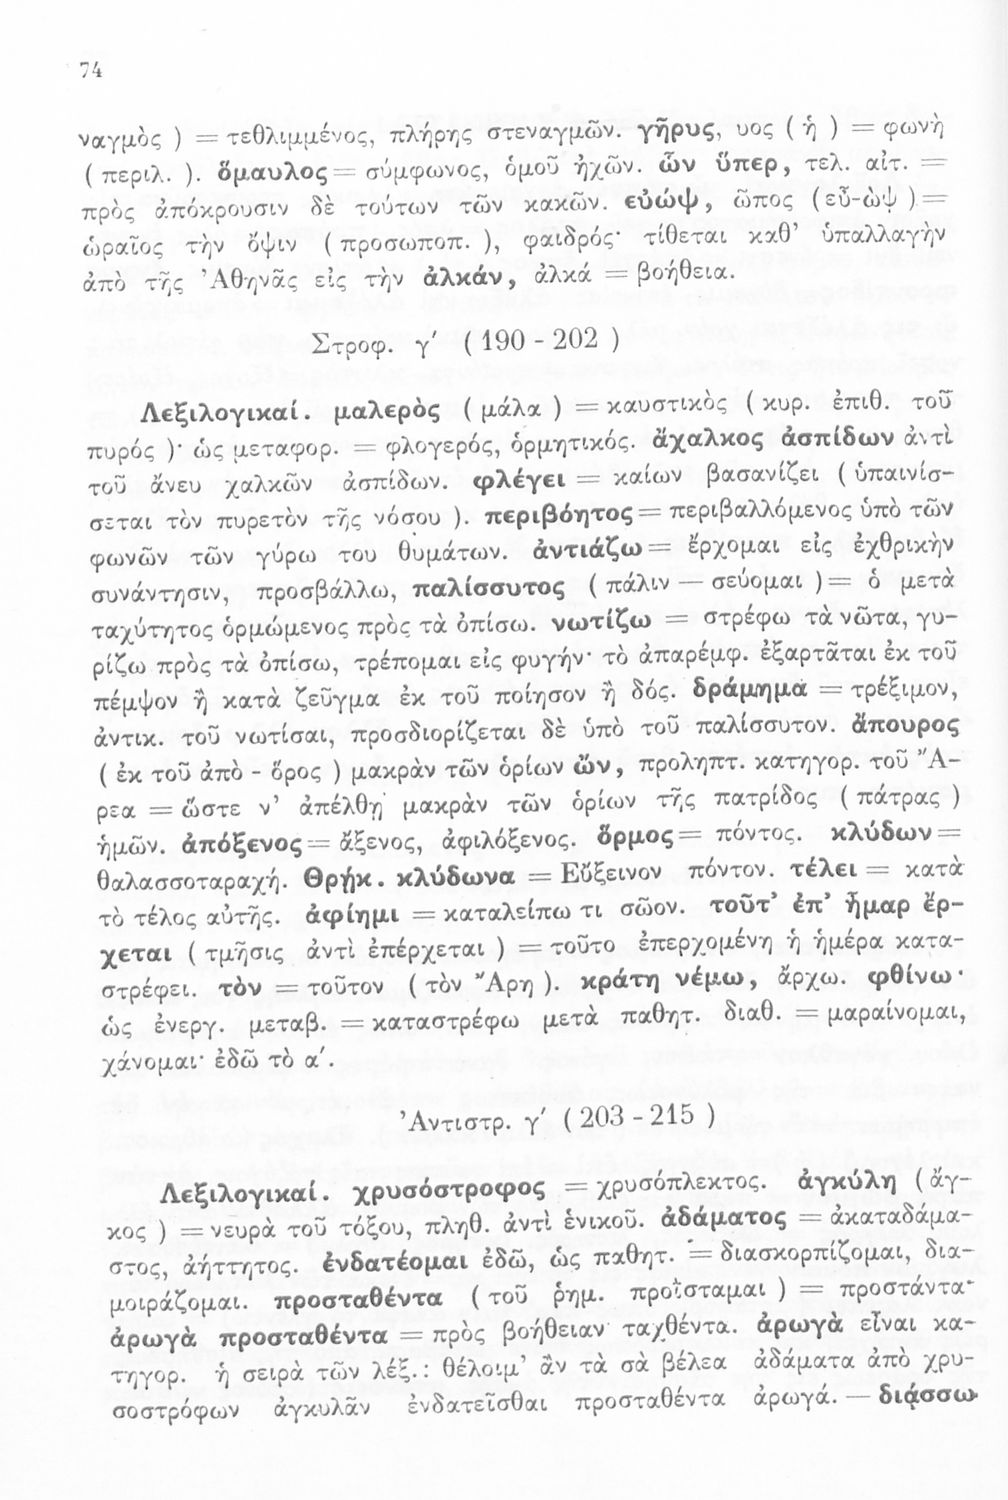 74
ναγμὸς ) = τεθλιμμένος, πλήρης στεναγμῶν. γῆρυς, υος ( ἡ ) = φωνὴ
( περιλ. ). ὅμαυλος = σύμφωνος, ὁμοῦ ἠχῶν. ὧν ὕπερ, τελ. αἰτ. =
πρὸς ἀπόκρουσιν δὲ τούτων τῶν κακῶν. εὐώψ, ῶπος (εὖ-ὼψ ) =
ὡραῖος τὴν ὄψιν ( προσωποπ. ), φαιδρός· τίθεται καθ’ ὑπαλλαγὴν
ἀπὸ τῆς Ἀθηνᾶς εἰς τὴν ἀλκάν, ἀλκά = βοήθεια.
Στροφ. γ΄ ( 190 - 202 )
Λεξιλογικαί. μαλερὸς ( μάλα ) = καυστικὸς ( κυρ. ἐπιθ. τοῦ
πυρός )· ὡς μεταφορ. = φλογερός, ὁρμητικός. ἄχαλκος ἀσπίδων ἀντὶ
τοῦ ἄνευ χαλκῶν ἀσπίδων. φλέγει = καίων βασανίζει ( ὑπαινίσ-
σεται τὸν πυρετὸν τῆς νόσου ). περιβόητος = περιβαλλόμενος ὑπὸ τῶν
φωνῶν τῶν γύρω του θυμάτων. ἀντιάζω = ἔρχομαι εἰς ἐχθρικὴν
συνάντησιν, προσβάλλω, παλίσσυτος ( πάλιν — σεύομαι ) = ὁ μετὰ
ταχύτητος ὁρμώμενος πρὸς τὰ ὀπίσω. νωτίζω = στρέφω τὰ νῶτα, γυ-
ρίζω πρὸς τὰ ὀπίσω, τρέπομαι εἰς φυγήν· τὸ ἀπαρέμφ. ἐξαρτᾶται ἐκ τοῦ
πέμψον ἢ κατὰ ζεῦγμα ἐκ τοῦ ποίησον ἢ δός. δράμημα = τρέξιμον,
ἀντικ. τοῦ νωτίσαι, προσδιορίζεται δὲ ὑπὸ τοῦ παλίσσυτον. ἄπουρος
( ἐκ τοῦ ἀπὸ - ὅρος ) μακρὰν τῶν ὁρίων ὤν, προληπτ. κατηγορ. τοῦ Ἄ-
ρεα = ὥστε ν’ ἀπέλθῃ μακρὰν τῶν ὁρίων τῆς πατρίδος ( πάτρας )
ἡμῶν. ἀπόξενος = ἄξενος, ἀφιλόξενος. ὅρμος = πόντος. κλύδων =
θαλασσοταραχή. Θρῄκ. κλύδωνα = Εὔξεινον πόντον. τέλει = κατὰ
τὸ τέλος αὐτῆς. ἀφίημι = καταλείπω τι σῶον. τοῦτ’ ἐπ’ ἦμαρ ἔρ-
χεται ( τμῆσις ἀντὶ ἐπέρχεται ) = τοῦτο ἐπερχομένη ἡ ἡμέρα κατα-
στρέφει. τὸν = τοῦτον ( τὸν Ἄρη ). κράτη νέμω, ἄρχω. φθίνω·
ὡς ἐνεργ. μεταβ. = καταστρέφω μετὰ παθητ. διαθ. = μαραίνομαι,
χάνομαι· ἐδῶ τὸ α΄.
Ἀντιστρ. γ΄ ( 203 - 215 )
Λεξιλογικαί. χρυσόστροφος = χρυσόπλεκτος. ἀγκύλη ( ἄγ-
κος ) = νευρὰ τοῦ τόξου, πληθ. ἀντὶ ἑνικοῦ. ἀδάματος = ἀκαταδάμα-
στος, ἀήττητος. ἐνδατέομαι ἐδῶ, ὡς παθητ. = διασκορπίζομαι, δια-
μοιράζομαι. προσταθέντα ( τοῦ ῥημ. προΐσταμαι ) = προστάντα·
ἀρωγὰ προσταθέντα = πρὸς βοήθειαν ταχθέντα. ἀρωγὰ εἶναι κα-
τηγορ. ἡ σειρὰ τῶν λέξ. : θέλοιμ’ ἂν τὰ σὰ βέλεα ἀδάματα ἀπὸ χρυ-
σοστρόφων ἀγκυλᾶν ἐνδατεῖσθαι προσταθέντα ἀρωγά. — διᾴσσω·